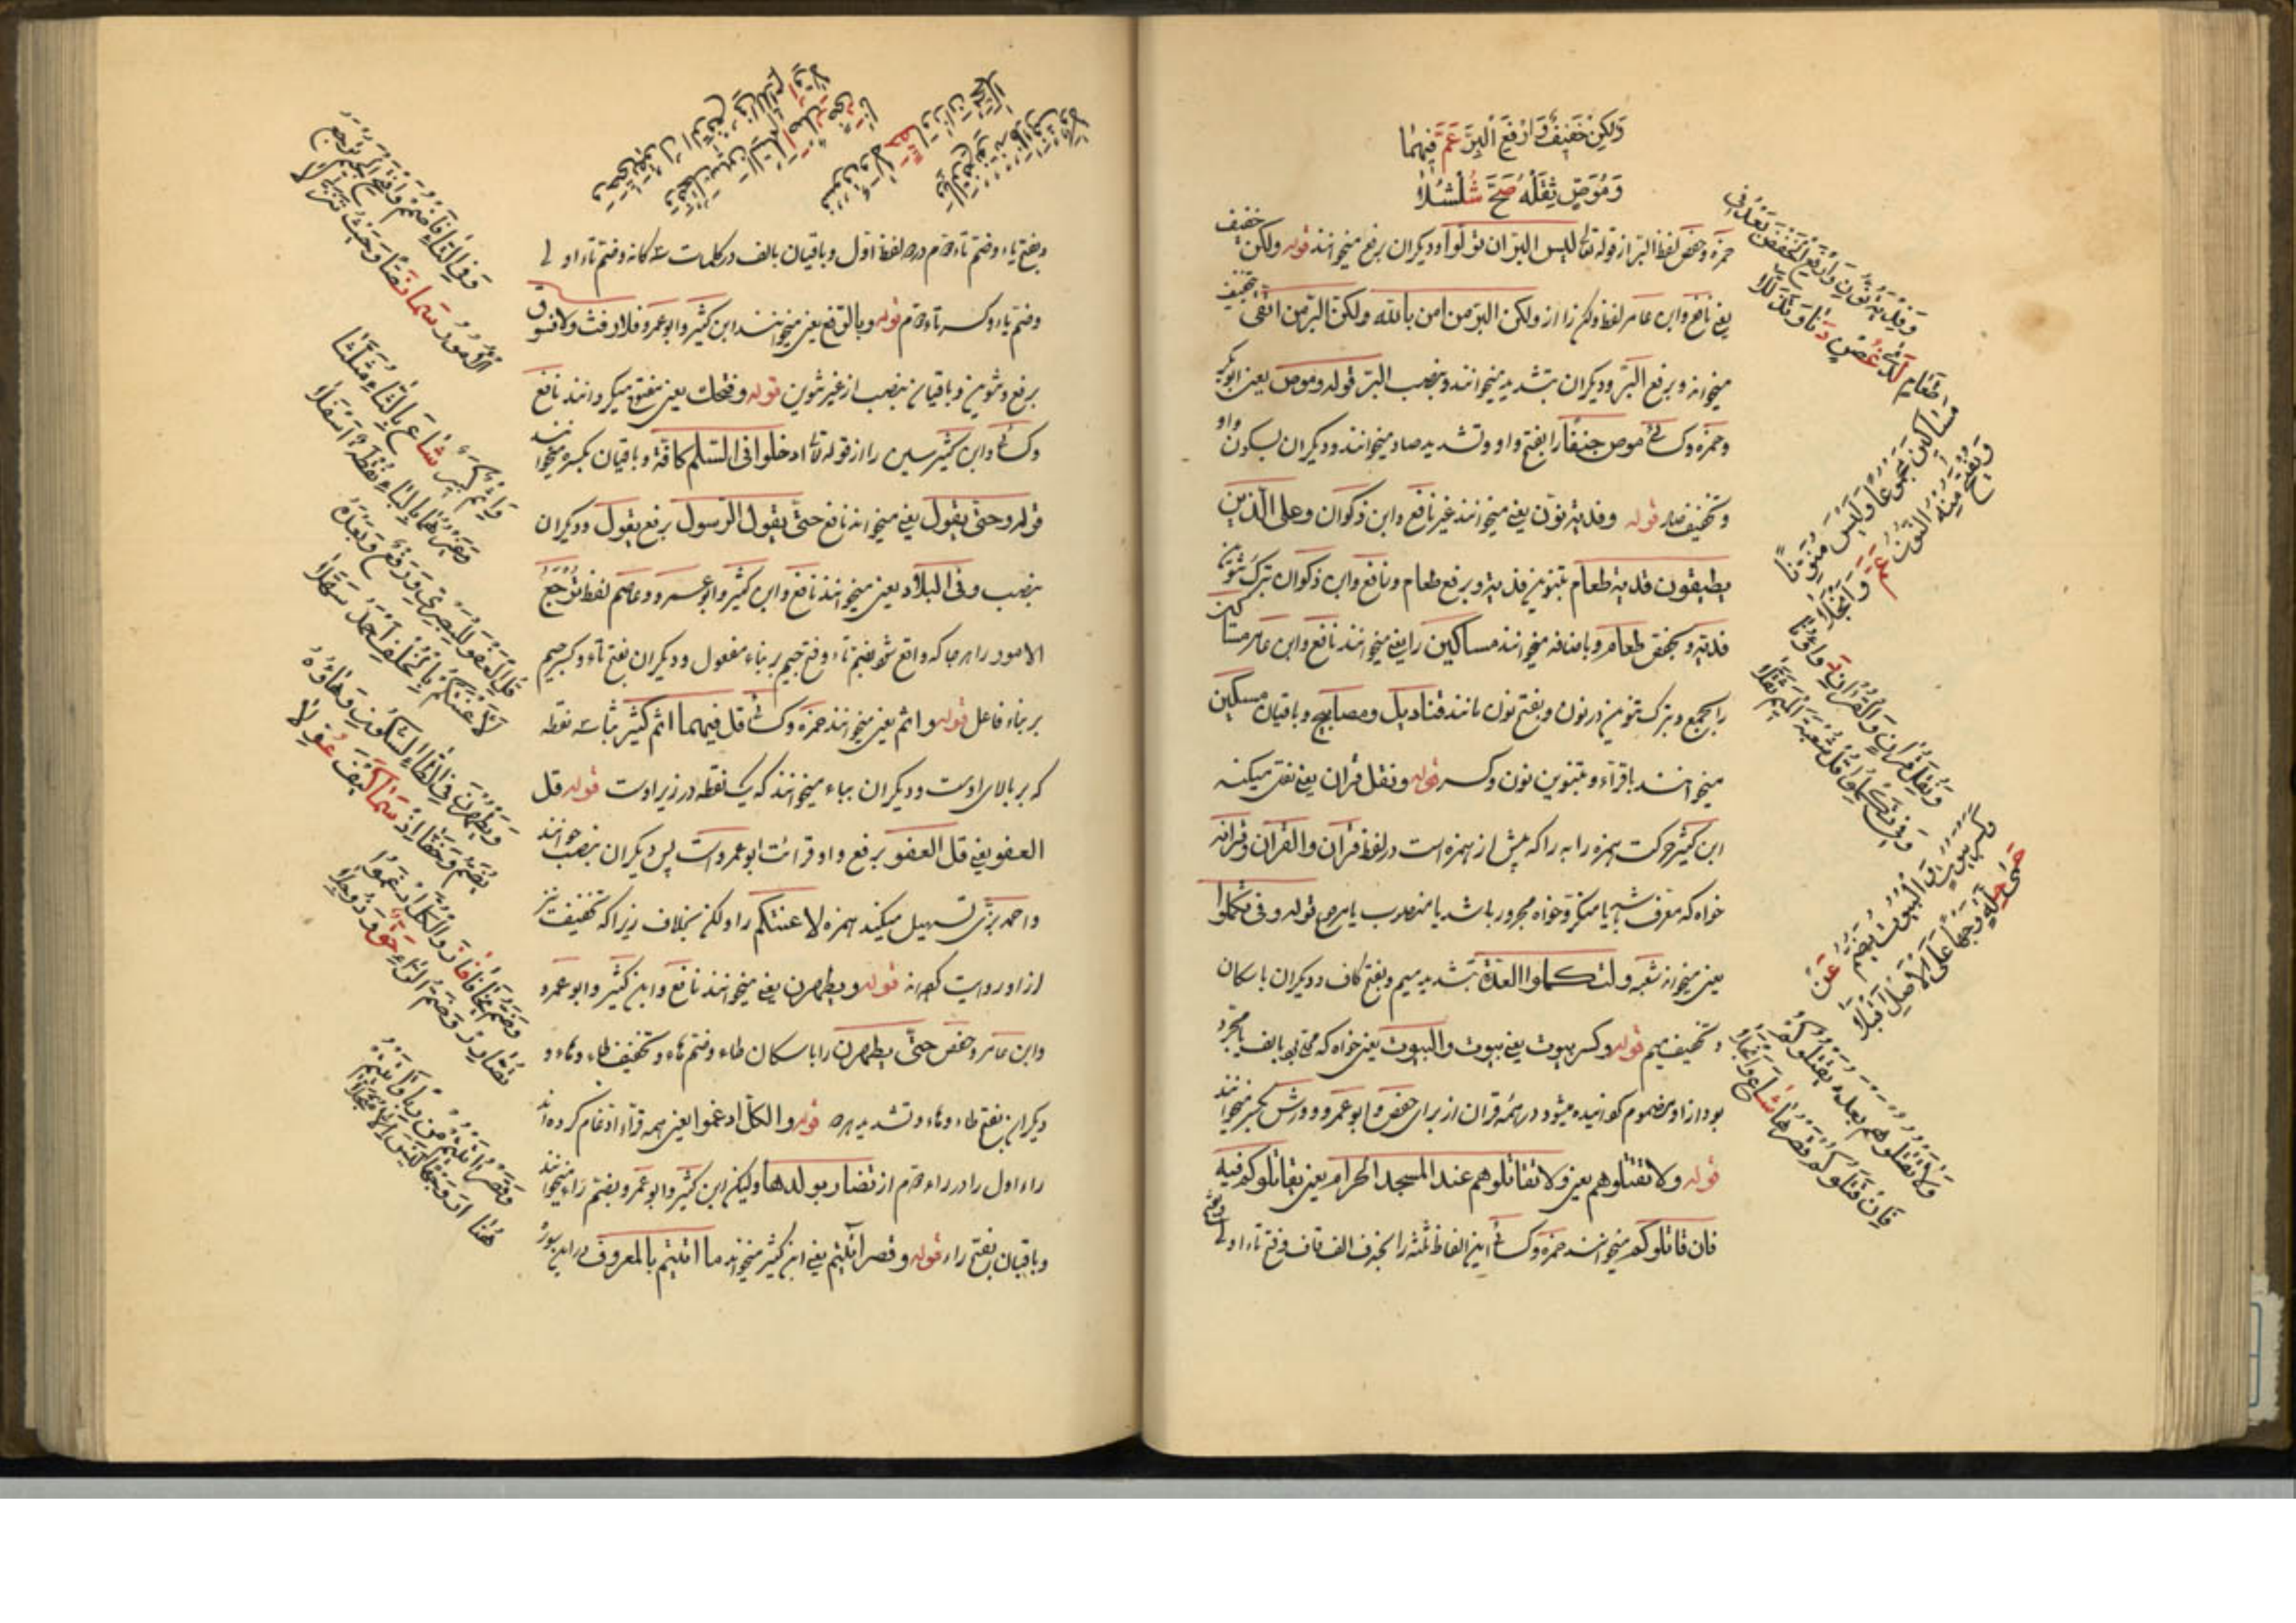 ولكن خفيف وارفع البر عم فيهما
وموص ثقله صح شلشلا
حمزه وحفص لفظ البر از قوله تعالى ليس البر ان تولوا وديكران برفع ميخوانند قوله ولكن خفيف
يعنى نافع وابن عامر لفظ ولكن را از ولكن البر من امن بالله ولكن البر من اتقى بتخفيف
ميخوانند وبرفع البر وديكران بتشديد ميخوانند وبنصب البر قوله وموص يعنى ابو بكر
وحمزه وكسائى موص جنفا را بفتح واو وتشديد صاد ميخوانند وديكران بسكون واو
وتخفيف صاد قوله وفدية نون يعنى ميخوانند غير نافع وابن ذكوان وعلى الذين
يطيقون فدية طعام بتنوين فدية وبرفع طعام ونافع وابن ذكوان بترك تنوين
فدية وبخفض طعام وباضافه ميخوانند مساكين را يعنى ميخوانند نافع وابن عامر مساكين
را بجمع وبترك تنوين در نون وبفتح نون مانند قناديل ومصابيح وباقيان مسكين
ميخوانند بافراد وبتنوين نون وكسر قوله ونقل قران يعنى نقل ميكند
ابن كثير حركت همزه را به را كه پيش از همزه است در لفظ قران والقران وقرانه
خواه كه معرف باشد يا منكر وخواه مجرور باشد يا منصوب يا مرفوع قوله وفى تكملوا
يعنى ميخواند شعبه ولتكملوا العدة بتشديد ميم وبفتح كاف وديكران باسكان
وتخفيف ميم قوله وكسر بيوت يعنى بيوت والبيوت يعنى خواه كه محلى بالف يا مجرد
بود از او مضموم كردانيده ميشود در همه قران از براى حفص وابو عمرو وورش بكسر ميخوانند
قوله ولا تقتلوهم يعنى ولا تقاتلوهم عند المسجد الحرام يعنى يقاتلوكم فيه
فان قاتلوكم ميخوانند حمزه وكسائى اين الفاظ ثلثه را بحذف الف قاف وفتح تاء اولى
وفدية نون وارفع الخفض بعد فى
طعام لدى غصن دنا وتذللا
مساكين مجموعا وليس منونا
ويفتح منه النون عم وابجلا
ونقل قران والقران دواؤنا
وفى تكملوا قل شعبة الميم ثقلا
وكسر بيوت والبيوت يضم عن
حمى جلة وجها على الاصل اقبلا
ولا تقتلوهم بعده يقتلوكم
فان قتلوكم قصرها شاع وانجلا
وبفتح ياء وضم تاء دوم در لفظ اول وباقيان بالف در كلمات سه كانه وضم تاء اولى
وضم ياء وكسر تاء دوم قوله وبالرفع يعنى ميخوانند ابن كثير وابو عمرو فلا رفث ولا فسوق
برفع وتنوين وباقيان بنصب از غير تنوين قوله وفتحك يعنى مفتوح ميكردانند نافع
وكسائى وابن كثير سين را از قوله تعالى ادخلوا فى السلم كافة وباقيان بكسره ميخوانند
قوله وحتى يقول يعنى ميخواند نافع حتى يقول الرسول برفع يقول وديكران
بنصب وفى البلاد يعنى ميخوانند نافع وابن كثير وابو عمرو وعاصم لفظ ترجع
الامور را هر جا كه واقع شود بضم تاء وفتح جيم بر بناء مفعول وديكران بفتح تاء وكسر جيم
بر بناء فاعل قوله واثم يعنى ميخوانند حمزه وكسائى قل فيهما اثم كثير بثاء سه نقطه
كه بر بالاى اوست وديكران بباء ميخوانند كه يك نقطه در زير اوست قوله قل
العفو يعنى قل العفو برفع واو قرائت ابو عمرو است پس ديكران بنصب خوانند
واحمد بزى تسهيل ميكند همزه لاعنتكم را ولكن بخلاف زيرا كه تخفيف نيز
از او روايت كرده اند قوله ويطهرن يعنى ميخوانند نافع وابن كثير وابو عمرو
وابن عامر وحفص حتى يطهرن را باسكان طاء وضم هاء وتخفيف طاء وهاء و
ديكران بفتح طاء وهاء وتشديد هر دو قوله والكل ادغموا يعنى همه قراء ادغام كرده اند
راء اول را در راء دوم از تضار بولدها وليكن ابن كثير وابو عمرو بضم راء ميخوانند
وباقيان بفتح راء قوله وقصر اتيتم يعنى ابن كثير ميخواند ما اتيتم بالمعروف در اين سوره
وفى التاء فاضمم وافتح الجيم ترجع
الامور سما نصا وحيث تنزلا
واثم كبير شاع بالثاء مثلثا
وغيرهما بالباء نقطة اسفلا
قل العفو للبصرى رفع وبعده
لاعنتكم بالخلف احمد سهلا
ويطهرن فى الطاء السكون وهاؤه
يضم وخفا اذ سما كيف عولا
وضم يخافا فاز والكل ادغموا
تضارر وضم الراء حق وذو جلا
وقصر اتيتم من ربا واتيتم
هنا دار وجها ليس الا مبجلا